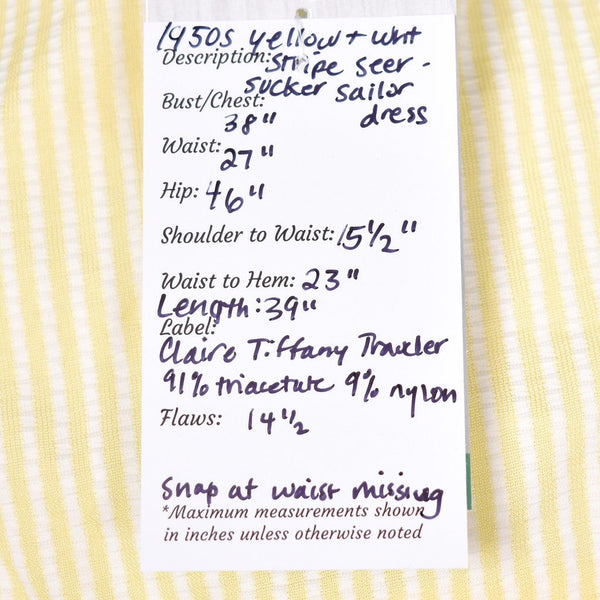 1950s yellow + wht
Description: stripe seer-
sucker sailor
Bust/Chest: dress
38"
Waist: 27"
Hip: 46"
Shoulder to Waist: 15½"
Waist to Hem: 23"
Length: 39"
Label:
Claire Tiffany Traveler
91% triacetate 9% nylon
Flaws: 14½
Snap at waist missing
*Maximum measurements shown
in inches unless otherwise noted